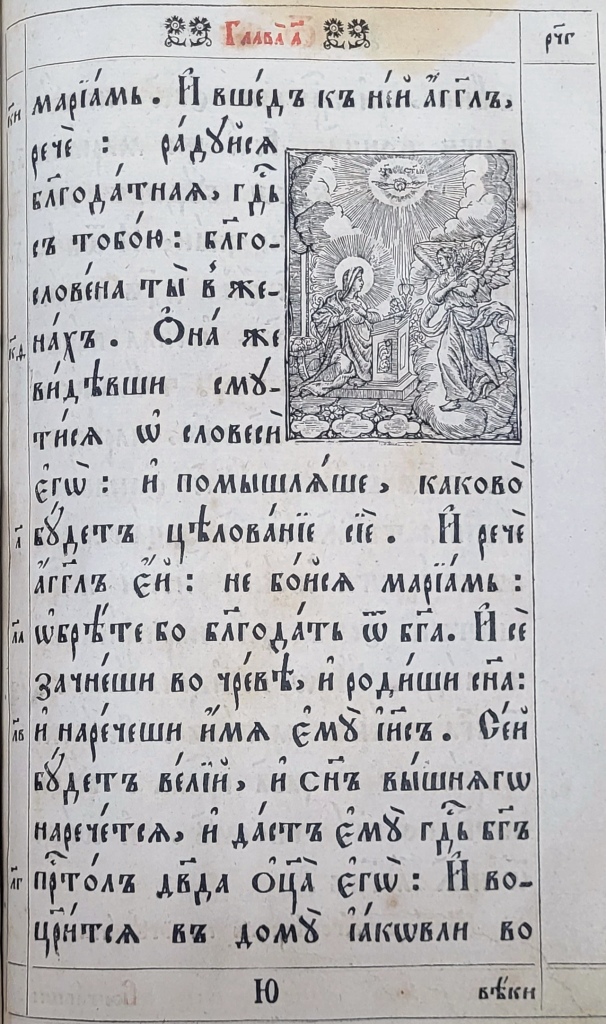 Глава̀ а҃
рч҃г
к҃и
марїа́мь. И҆ вше́дъ къ не́й а҆́гг҃лъ,
речѐ: ра́дуйсѧ
бл҃года́тная, гд҇ь
съ тобо́ю: бл҃го-
слове́на ты̀ в҆ же-
к҃ѳ
на́хъ. Ѻ҆на́ же
ви́дѣвши сму-
ти́сѧ ѡ҆ словесѝ
є҆гѡ̀: и҆ помышлѧ́ше, каково̀
л҃
бу́детъ цѣлова́нїе сїѐ. И҆ речѐ
а҆́гг҃лъ є҆́й: не бо́йсѧ марїа́мь:
л҃а
ѡ҆брѣ́те бо бл҃года́ть ѿ бг҃а. И҆ сѐ
зачне́ши во чре́вѣ, и҆ роди́ши сн҃а:
л҃в
и҆ нарече́ши и҆́мя є҆мꙋ̀ і҆и҃съ. Се́й
бу́детъ ве́лїй, и҆ сн҃ъ вы́шнягѡ
нарече́тсѧ, и҆ да́стъ є҆мꙋ̀ гд҇ь бг҃ъ
л҃г
прⷭ҇то́лъ дв҃да ѻ҆ц҃а̀ є҆гѡ̀: И҆ во-
цр҃и́тсѧ въ домꙋ̀ і҆а́кѡвли во
Ю
вѣ́ки